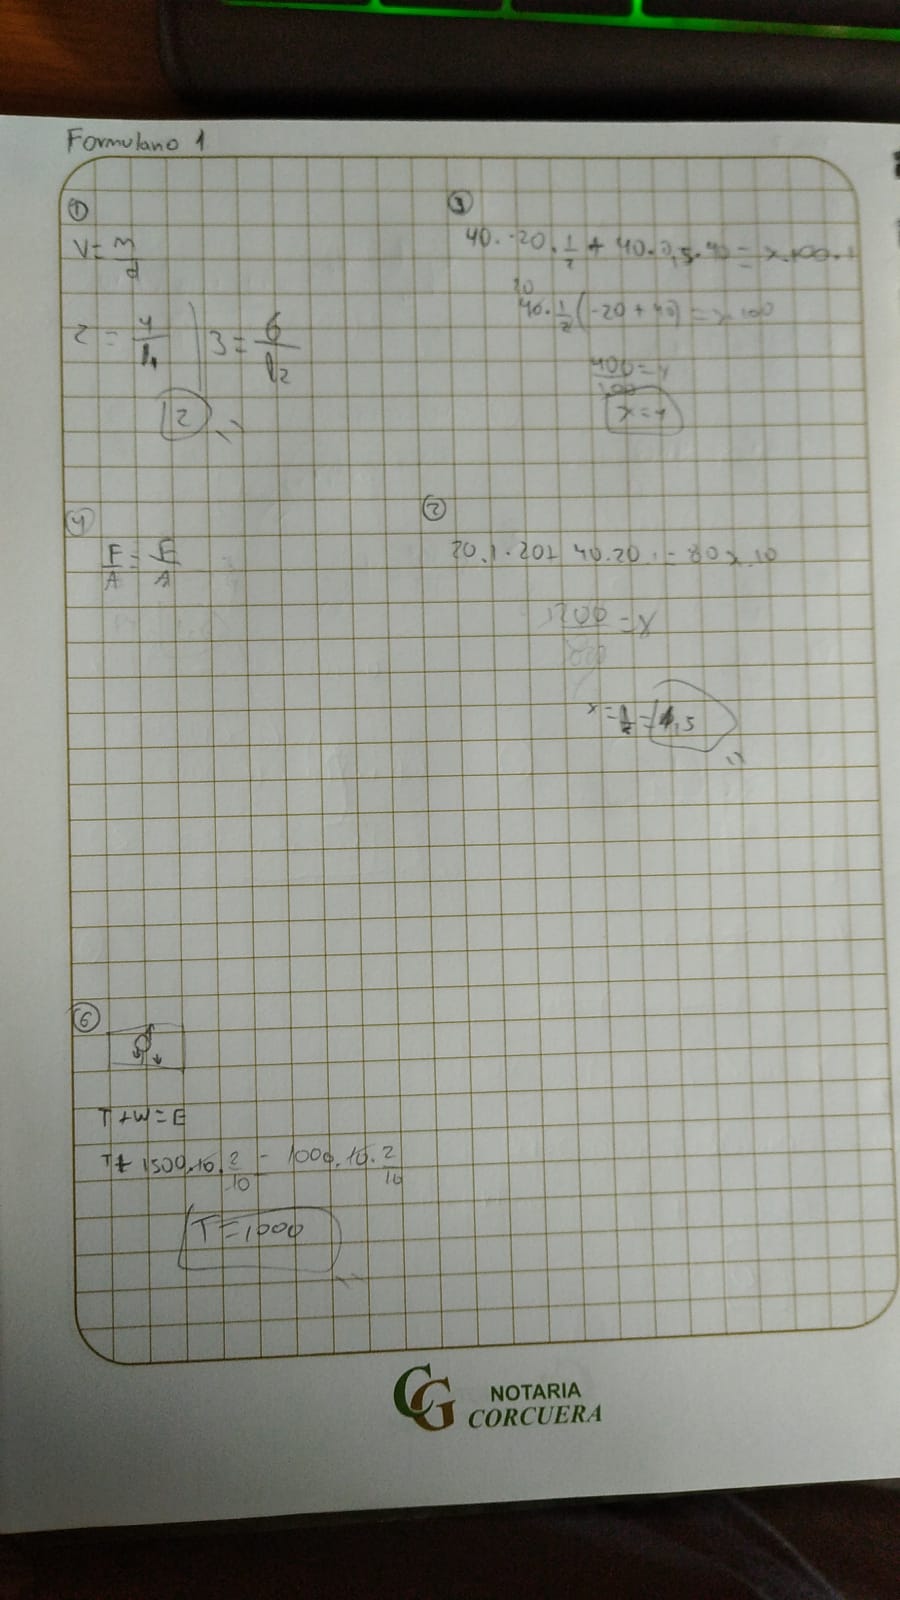 Formulario 1
①
V = m/d
2 = 4/l₁ | 3 = 6/l₂
2
③
40.-20.1/2 + 40.0,5.40 = x.100.1
20
40.1/2(-20+40) = x.100
400/100 = x
x=4
④
F/A = F/A
②
20.1.20+ 40.20.1 = 80x.10
1200 = x
x = = 1,5
⑥
T+W=E
T+ 1500.10.2/10 = 1000.10.2/10
T=1000
CG
NOTARIA
CORCUERA